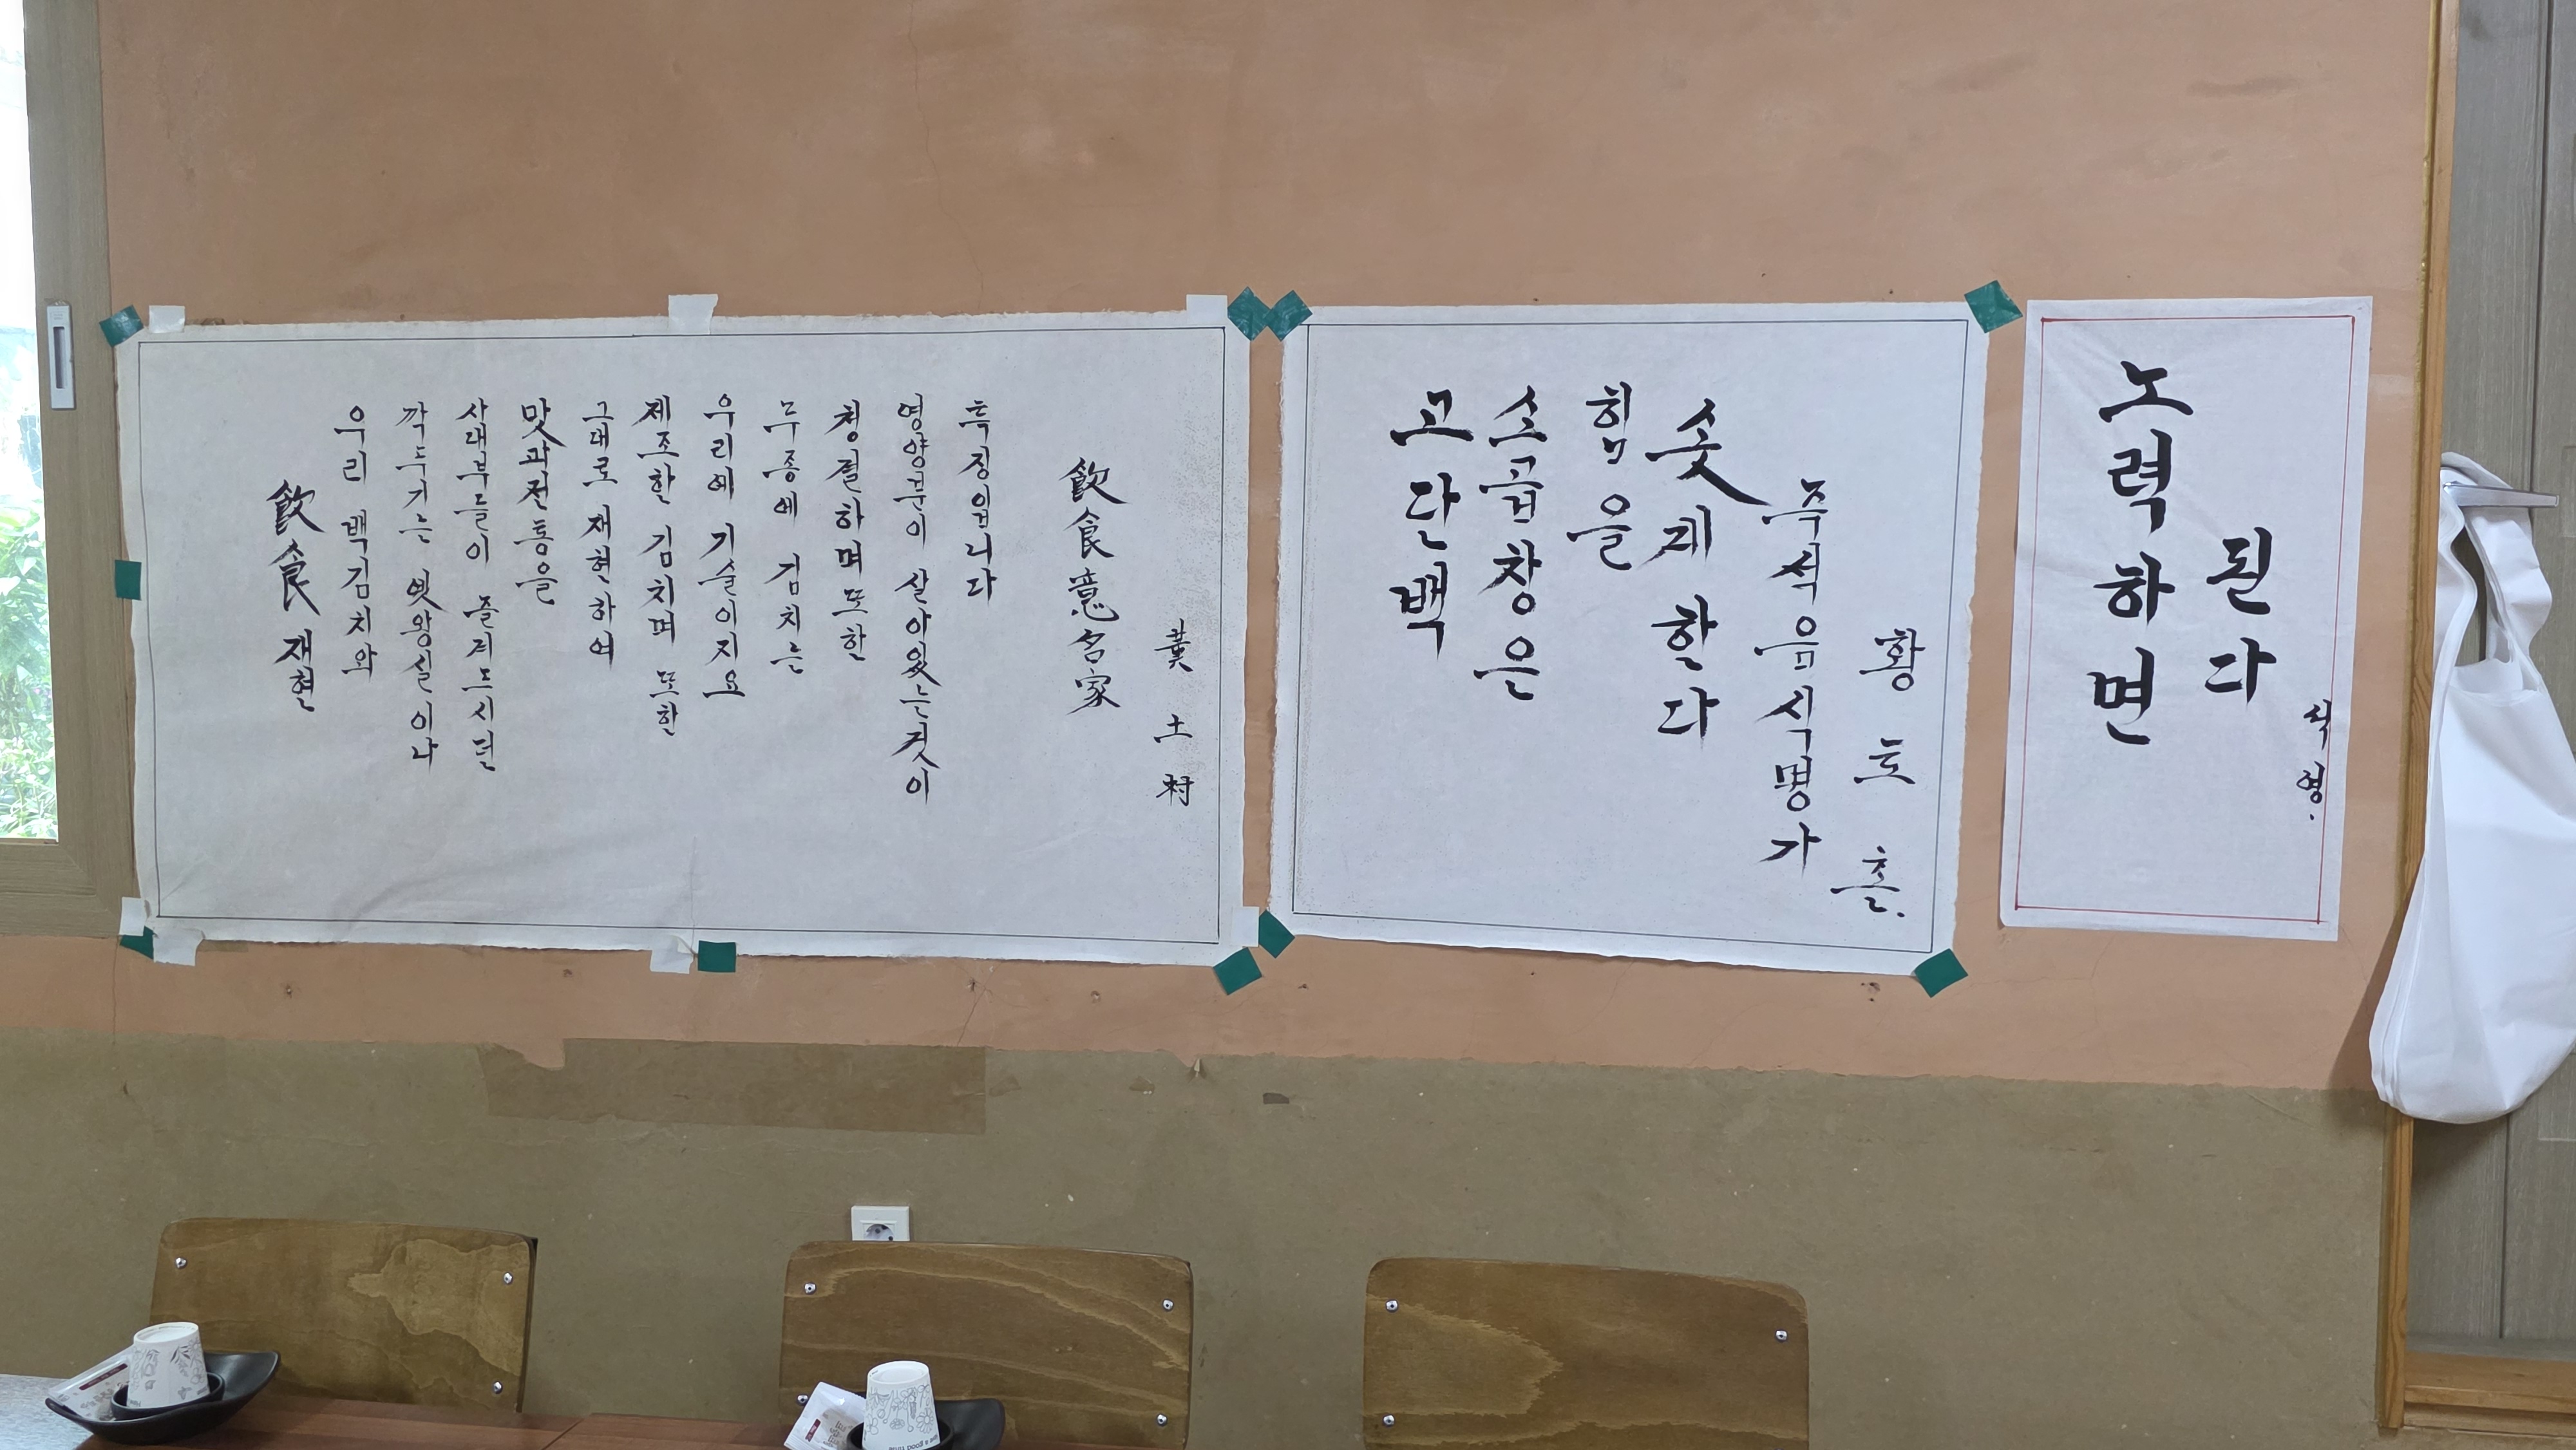 飮食 재현
우리 백김치와
깍두기는 옛왕실이나
사대부들이 즐겨드시던
맛과전통을
그대로 재현하여
제조한 김치며 또한
우리에 기술이지요
두종에 김치는
청결하며또한
영양분이 살아있는것이
특징입니다
飮食意名家
黃土村
고단백
소곱창은
힘을
솟게한다
주석음식명가
황토촌.
노력하면
된다
석영.